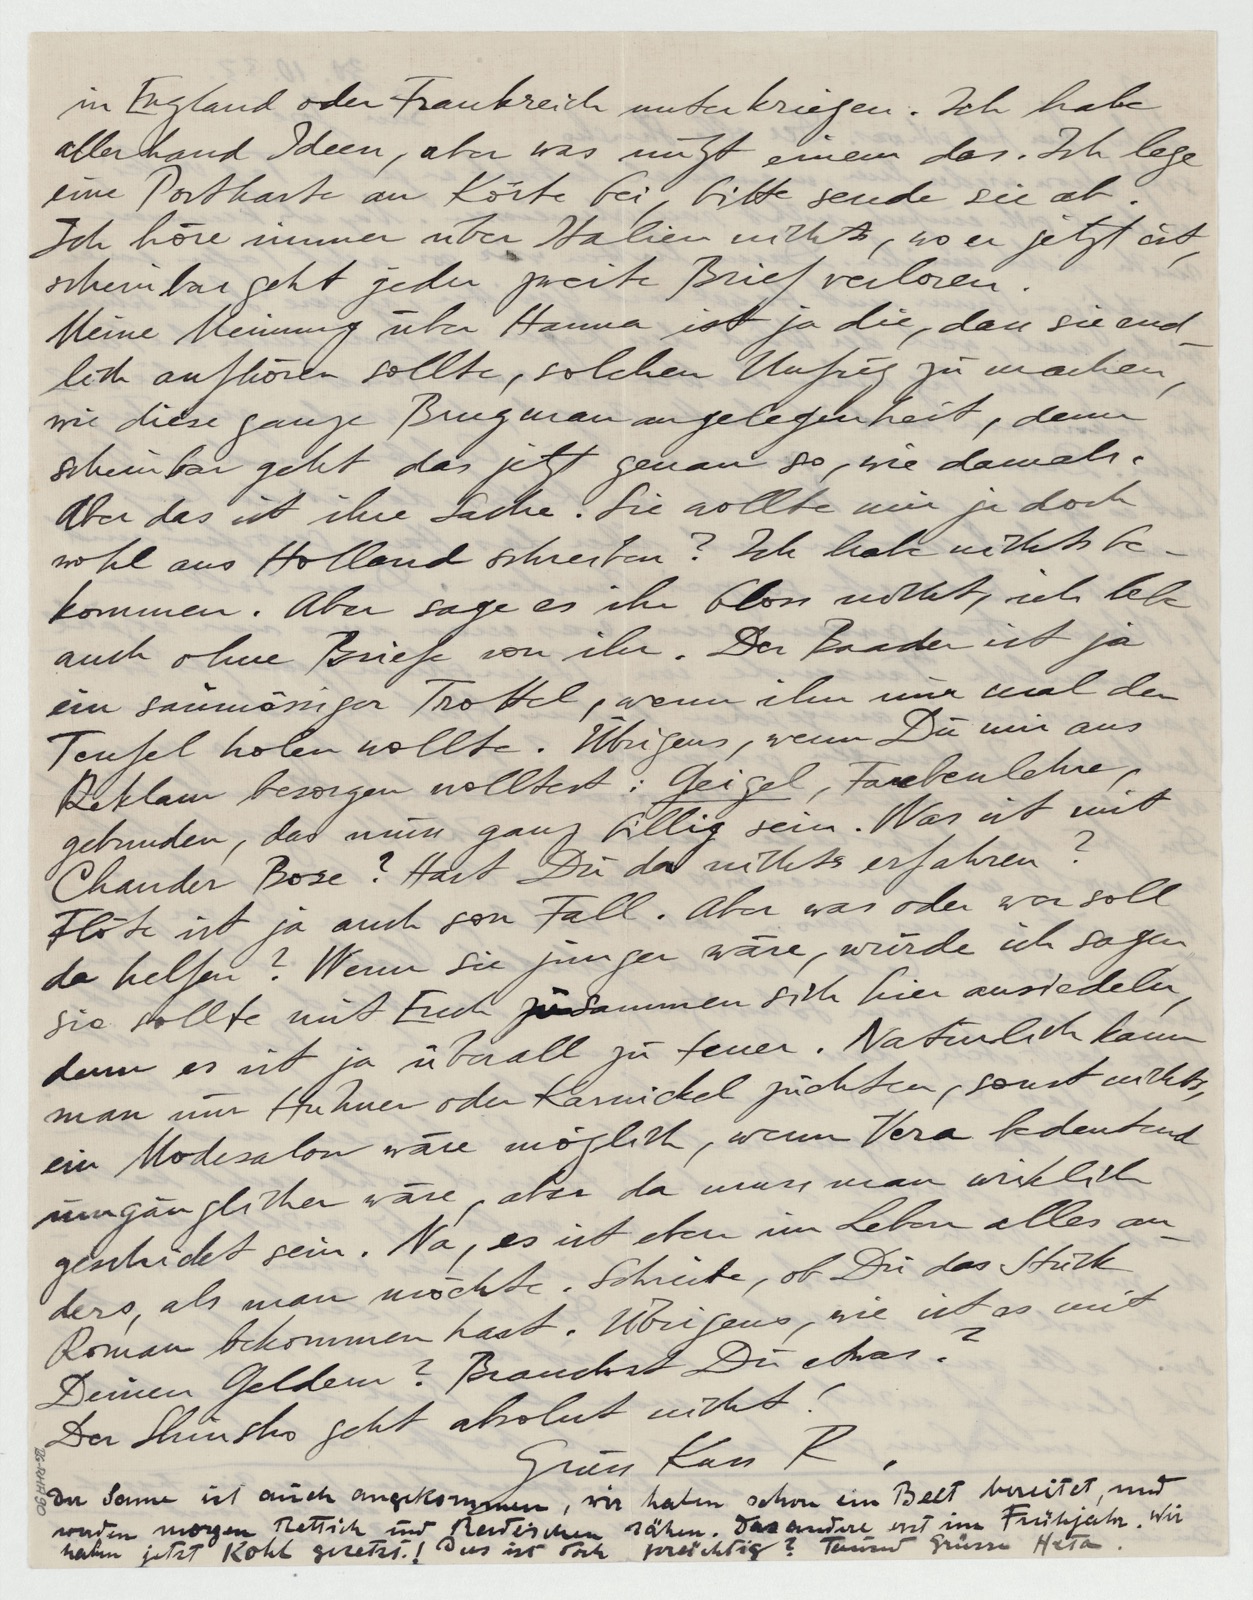 in England oder Frankreich unterkriegen. Ich habe
allerhand Ideen, aber was nützt einem das. Ich lege
eine Postkarte an Körte bei, bitte sende sie ab.
Ich höre immer über Italien nichts, wo er jetzt ist,
scheinbar geht jeder zweite Brief verloren.
Meine Meinung über Hanna ist ja die, dass sie end-
lich aufhören sollte, solchen Unfug zu machen,
wie diese ganze Brugmanangelegenheit, denn
scheinbar geht das jetzt genau so, wie damals.
Aber das ist ihre Sache. Sie wollte mir ja doch
wohl aus Holland schreiben? Ich habe nichts be-
kommen. Aber sage es ihr bloss nicht, ich lebe
auch ohne Briefe von ihr. Der Baader ist ja
ein saumässiger Trottel, wenn ihn nur mal der
Teufel holen wollte. Übrigens, wenn Du mir aus
Reklam besorgen wolltest: Geigel, Farbenlehre,
gebunden, das muss ganz billig sein. Was ist mit
Chander Bose? Hast Du da nichts erfahren?
Flöte ist ja auch son Fall. Aber was oder wer soll
da helfen? Wenn sie jünger wäre, würde ich sagen
sie sollte mit Euch zusammen sich hier ansiedeln,
denn es ist ja überall zu teuer. Natürlich kann
man nur Hühner oder Karnickel züchten, sonst nichts,
ein Modesalon wäre möglich, wenn Vera bedeutend
umgänglicher wäre, aber da muss man wirklich
geschickt sein. Na, es ist eben im Leben alles an-
ders, als man möchte. Schreibe, ob Du das Stück
Roman bekommen hast. Übrigens, wie ist es mit
Deinen Geldern? Brauchst Du etwas?
Der Shinsho geht absolut nicht!
Gruss Kuss R.
Der Same ist auch angekommen, wir haben schon ein Beet bereitet, und
werden morgen Rettich und Radieschen sähen. Das andere erst im Frühjahr. Wir
haben jetzt Kohl gesetzt! Das ist doch prächtig? Tausend Grüsse Heta.